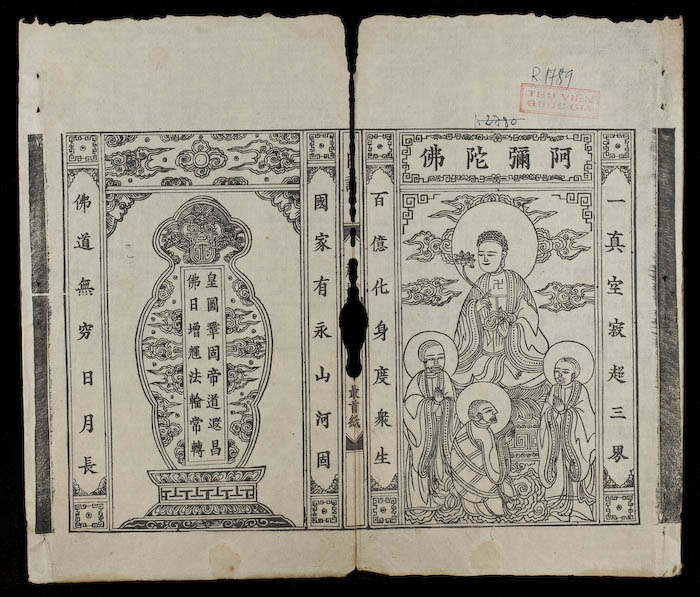 R.1789
THƯ VIỆN
QUỐC GIA
阿彌陀佛
一真空寂超三界
百億化身度衆生
最首紙
國家有永山河固
皇圖鞏固帝道遐昌
佛日增輝法輪常轉
佛道無窮日月長